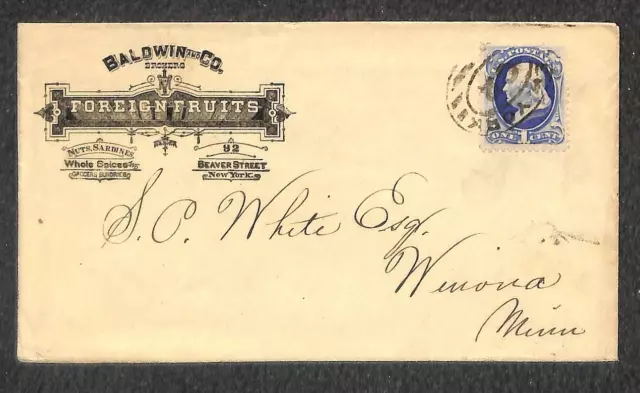 BALDWIN AND CO.
BROKERS
FOREIGN FRUITS
NUTS, SARDINES,
Whole Spices
GROCERS SUNDRIES
92
BEAVER STREET
New York.
U.S. POSTAGE
ONE 1 CENT
S. P. White Esq.
Winona
Minn